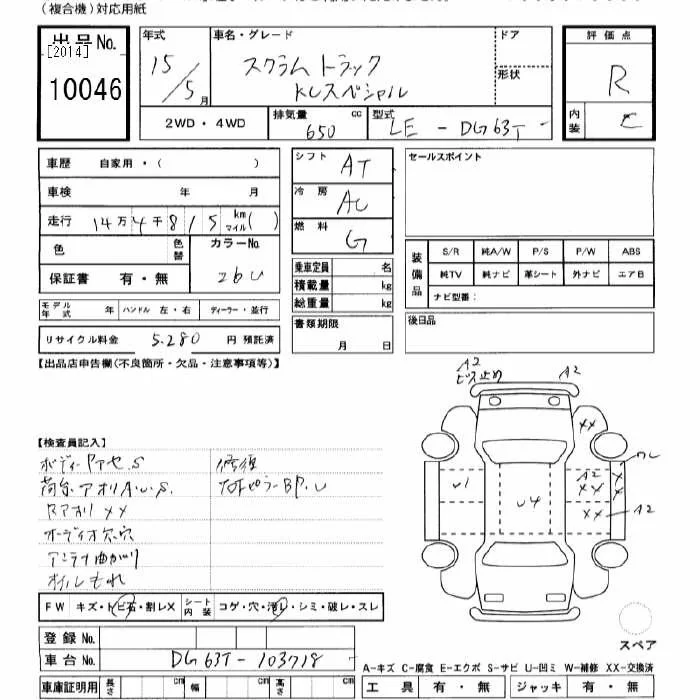 (複合機)対応用紙
出品No. 年式 車名・グレード ドア 評価点
[2014]
10046 15/5月 スクラムトラック KCスペシャル 形状 R
2WD・4WD 排気量 650 cc 型式 LE-DG63T- 内装 C
車歴 自家用・( ) シフト AT セールスポイント
車検 年 月 冷房 AC
走行 14万4千815 km マイル( ) 燃料 G
色 色替 カラーNo. 26U 乗車定員 名 装備品 S/R 純A/W P/S P/W ABS
保証書 有・無 積載量 kg 純TV 純ナビ 革シート 外ナビ エアB
総重量 kg ナビ型番:
モデル年式 年 ハンドル 左・右 ディーラー・並行 書類期限 月 日 後日品
リサイクル料金 5.280 円 預託済
【出品店申告欄(不良箇所・欠品・注意事項等)】
A2
ビス止め A2
XX
【検査員記入】
ボディー ドアセ.S 修復
荷台、アオリA.U.S. U
ドアオリ XX
オーディオ欠.穴
アンテナ曲がり
オイルもれ
U1 U4 A2 XX XX A2 X X
FW キズ・トビ石・割レX シート内装 コゲ・穴・汚レ・シミ・破レ・スレ
登録No.
車台No. DG63T-103718 スペア
A-キズ C-腐食 E-エクボ S-サビ U-凹ミ W-補修 XX-交換済
車庫証明用 長さ cm 幅 cm 高さ cm 工具 有・無 ジャッキ 有・無